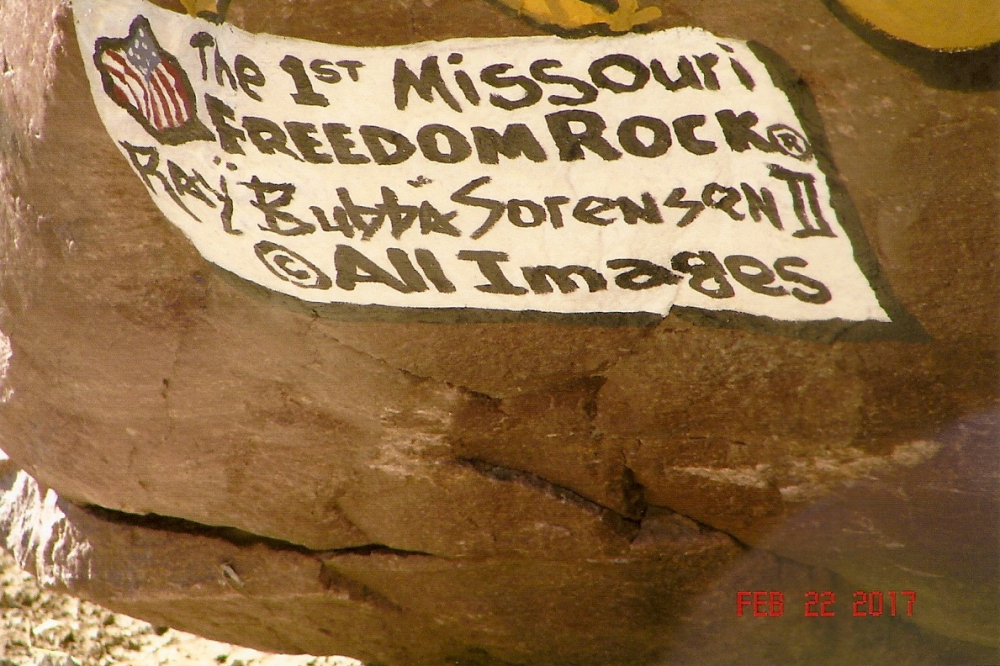 The 1ST Missouri
FREEDOM ROCK®
Ray "Bubba" Sorensen II
© All Images
FEB 22 2017